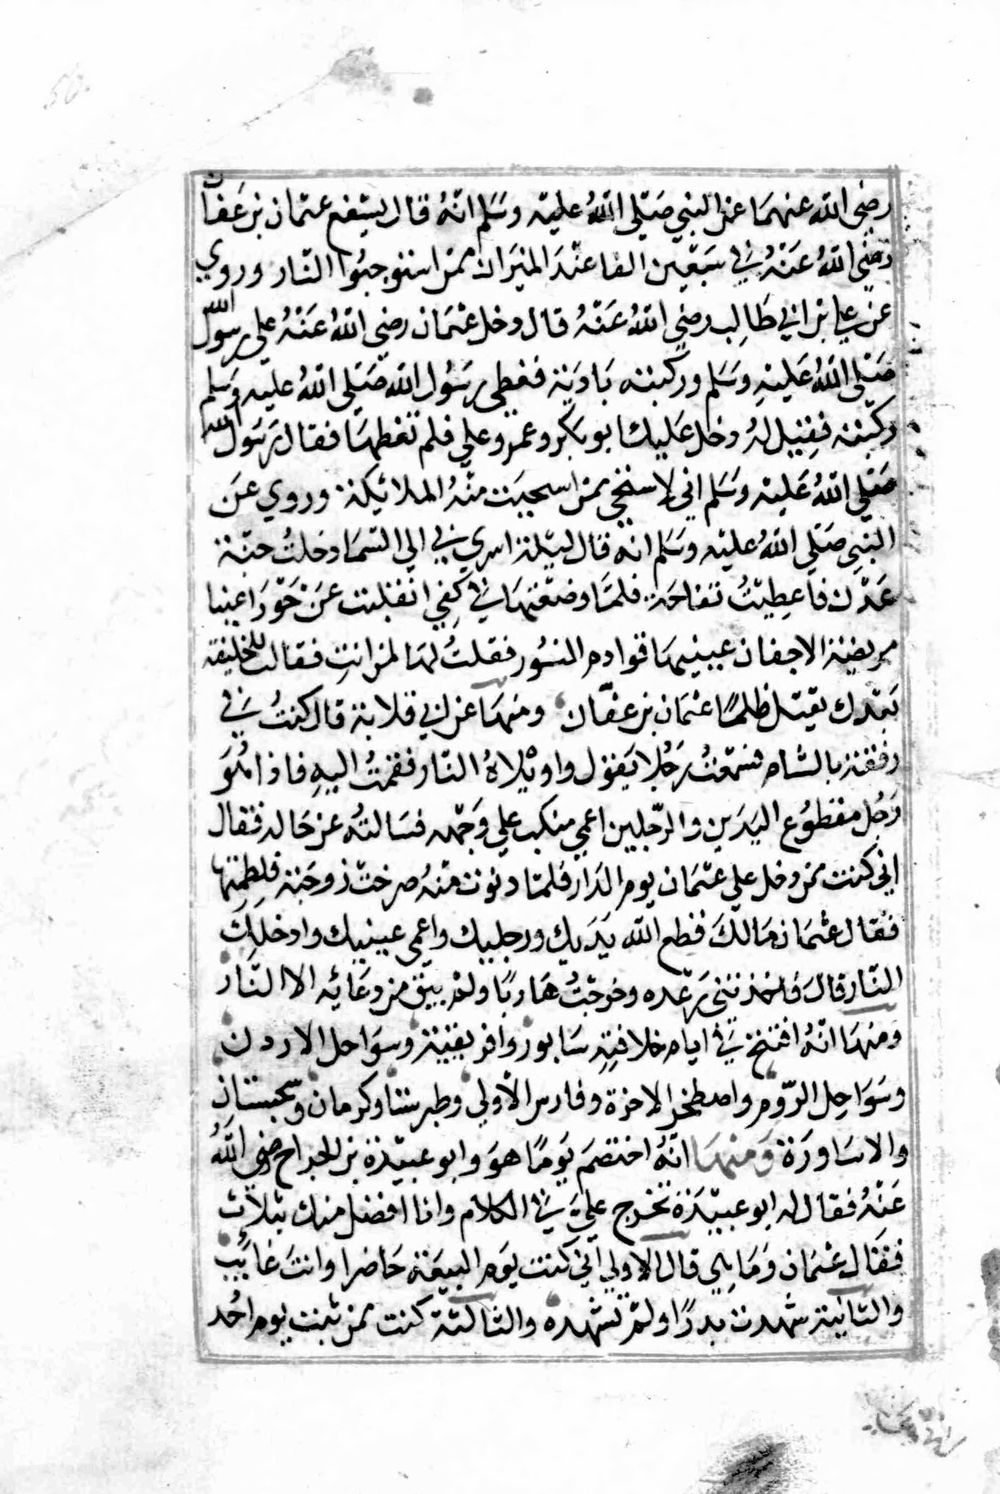 رضي الله عنهما عن النبي صلى الله عليه وسلم انه قال يشفع عثمان بن عفان
رضي الله عنه في سبعين الفا عند الميزان ممن استوجبوا النار وروي
عن علي بن ابي طالب رضي الله عنه قال دخل عثمان رضي الله عنه على رسول الله
صلى الله عليه وسلم وركبته بادية فغطى رسول الله صلى الله عليه وسلم
ركبته فقيل له دخل عليك ابو بكر وعمر وعلي فلم تغطها فقال رسول الله
صلى الله عليه وسلم اني لاستحي ممن استحيت منه الملائكة وروي عن
النبي صلى الله عليه وسلم انه قال ليلة اسري بي الى السما دخلت جنة
عدن فاعطيت تفاحة فلما وضعتها في كفي انفلقت عن حورا عينا
مريضة الاجفان عينيها قوادم النسور فقلت لها لمن انت فقالت للخليفة
بعدك يقتل ظلما عثمان بن عفان ومنها عن ابي قلابة قال كنت في
رفقة بالشام فسمعت رجلا يقول واويلاه النار فقمت اليه فاذا هو
رجل مقطوع اليدين والرجلين اعمي منكب علي وجهه فسالته عن حاله فقال
اني كنت ممن دخل علي عثمان يوم الدار فلما دنوت منه صرخت زوجته فلطمتها
فقال عثمان مالك قطع الله يديك ورجليك واعمى عينيك وادخلك
النار قال فاخذتني رعده وخرجت هاربا ولم يبق من دعائه الا النار
ومنها انه افتتح في ايام خلافته سابور وافريقية وسواحل الاردن
وسواحل الروم واصطخر الاخرة وفارس الأولي وطبرستا وكرمان وسجستان
والاساورة ومنها انه اختصم يوما هو وابو عبيدة بن الجراح رضي الله
عنه فقال له ابو عبيدة تخرج علي في الكلام وانا افضل منك بثلاث
فقال عثمان وما هي قال الاولي اني كنت يوم البيعة حاضرا وانت غايب
والثانية شهدت بدرا ولم تشهده والثالثة كنت ممن ثبت يوم احد